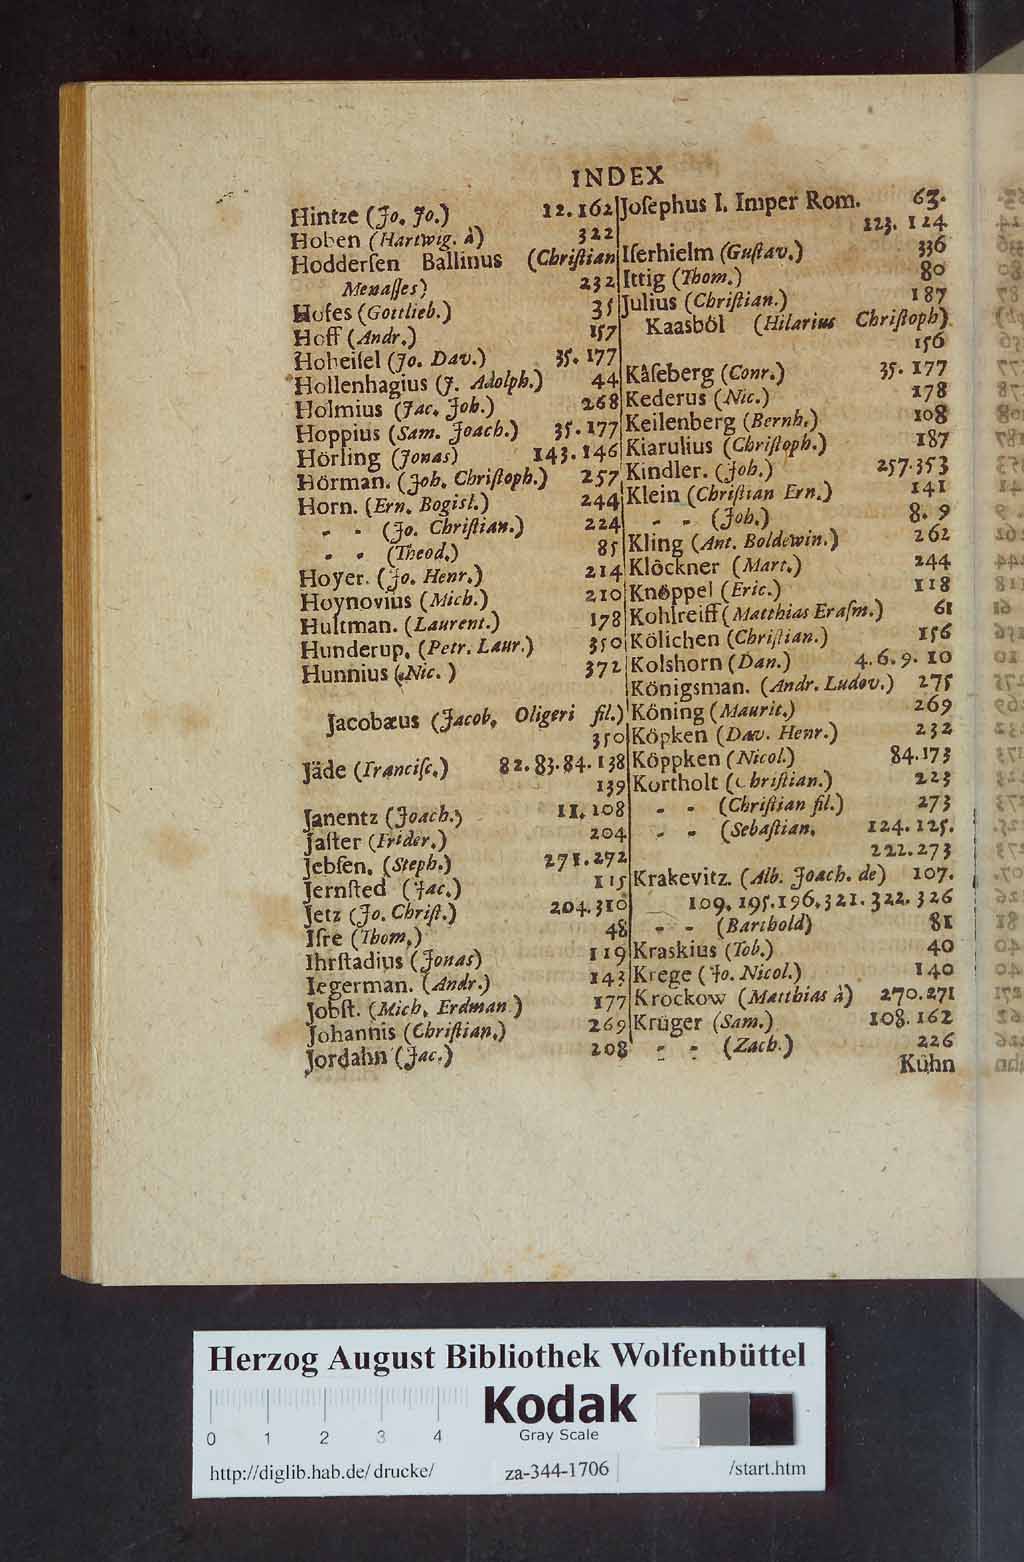 INDEX
Hintze (Jo. Jo.) 12.162
Hoben (Hartwig. à) 322
Hoddersen Ballinus (Christian
Menasses) 232
Hofes (Gottlieb.) 35
Hoff (Andr.) 157
Hoheisel (Jo. Dav.) 35. 177
Hollenhagius (J. Adolph.) 44
Holmius (Jac. Joh.) 268
Hoppius (Sam. Joach.) 35.177
Hörling (Jonas) 143.146
Hörman. (Joh. Christoph.) 257
Horn. (Ern. Bogisl.) 244
- - (Jo. Christian.) 224
- - (Theod.) 85
Hoyer. (Jo. Henr.) 214
Hoynovius (Mich.) 210
Hultman. (Laurent.) 178
Hunderup. (Petr. Laur.) 350
Hunnius (Nic.) 372
Jacobæus (Jacob. Oligeri fil.)
350
Jäde (Francisc.) 82. 83. 84. 138
139
Janentz (Joach.) 11. 108
Jaster (Frider.) 204
Jebsen. (Steph.) 271.272
Jernsted (Jac.) 115
Jetz (Jo. Christ.) 204.310
Isre (Thom.) 48
Ihrstadius (Jonas) 119
Iegerman. (Andr.) 143
Jobst. (Mich. Erdman) 177
Johannis (Christian.) 269
Jordahn (Jac.) 208
Josephus I. Imper Rom. 63.
123. 124
Iserhielm (Gustav.) 336
Ittig (Thom.) 80
Julius (Christian.) 187
Kaasböl (Hilarius Christoph)
156
Kåseberg (Conr.) 35. 177
Kederus (Nic.) 178
Keilenberg (Bernh.) 108
Kiarulius (Christoph.) 187
Kindler. (Joh.) 257.353
Klein (Christian Ern.) 141
- - (Joh.) 8. 9
Kling (Ant. Boldewin.) 262
Klöckner (Mart.) 244
Knöppel (Eric.) 118
Kohlreiff (Matthias Erasm.) 61
Kölichen (Christian.) 156
Kolshorn (Dan.) 4. 6. 9. 10
Königsman. (Andr. Ludov.) 275
Köning (Maurit.) 269
Köpken (Dav. Henr.) 232
Köppken (Nicol.) 84.173
Kortholt (Christian.) 223
- - (Christian fil.) 273
- - (Sebastian. 124. 125.
222.273
Krakevitz. (Alb. Joach. de) 107.
109. 195.196.321. 322. 326
- - (Barthold) 81
Kraskius (Tob.) 40
Krege (Jo. Nicol.) 140
Krockow (Matthias à) 270.271
Krüger (Sam.) 108. 162
- - (Zach.) 226
Kühn
Herzog August Bibliothek Wolfenbüttel
Kodak
Gray Scale
0 1 2 3 4
http://diglib.hab.de/drucke/ za-344-1706 /start.htm